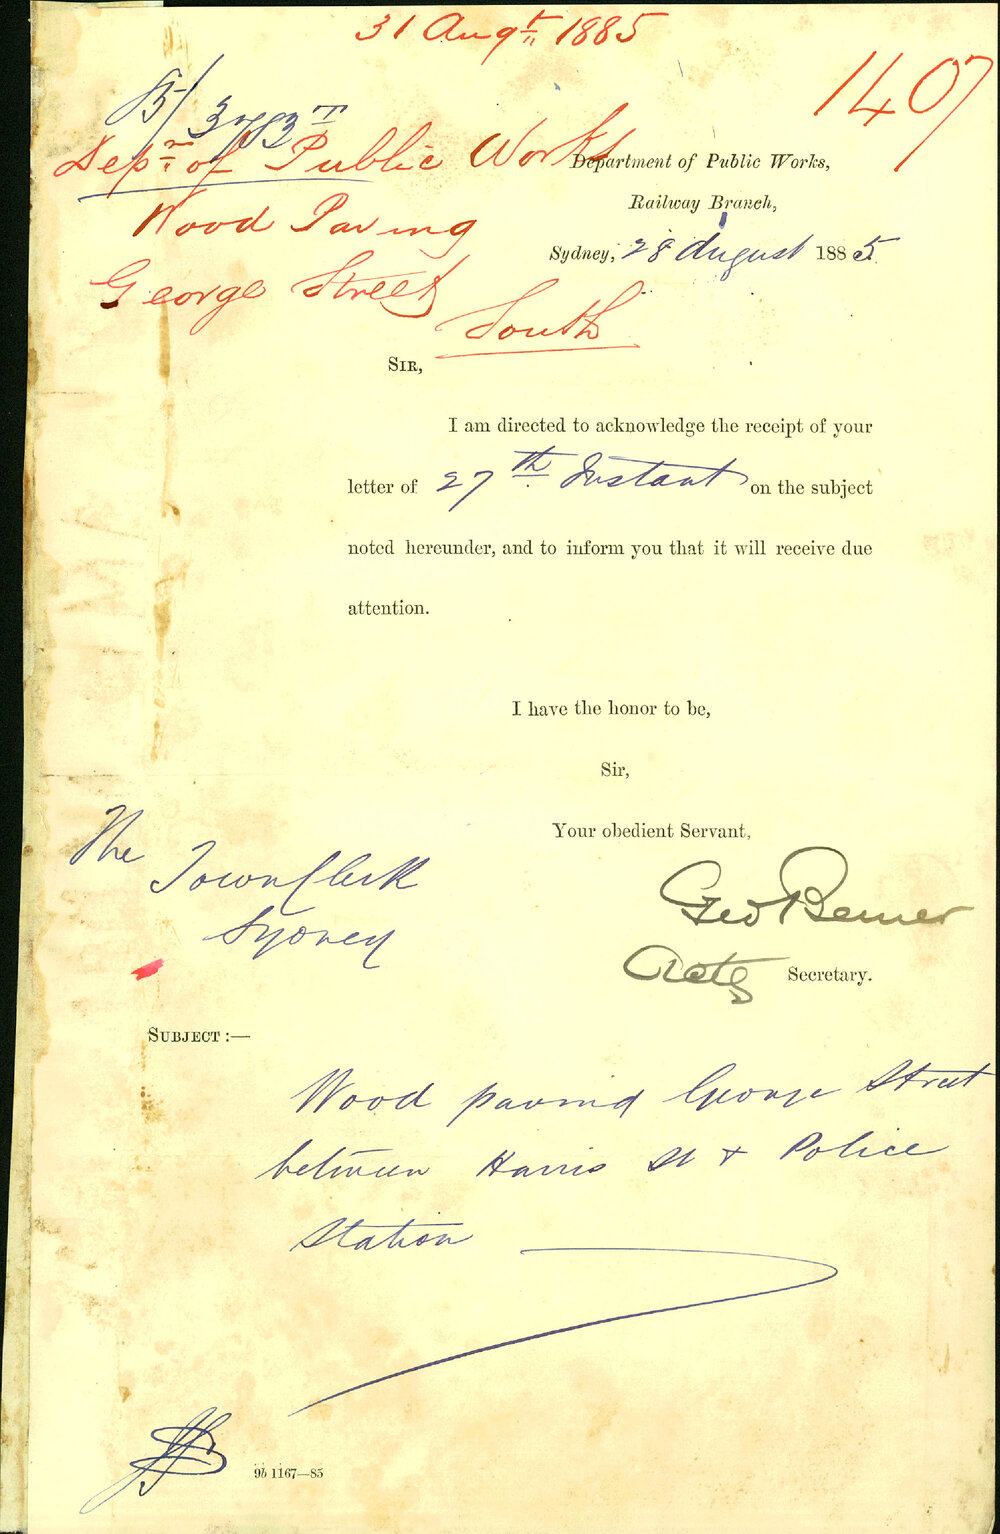 31 Augt 1885
1407
85/3783T
Depn of Public Works
Wood Paving
George Street
South
Department of Public Works,
Railway Branch,
Sydney, 28 August 1885
SIR,
I am directed to acknowledge the receipt of your
letter of 27th Instant on the subject
noted hereunder, and to inform you that it will receive due
attention.
I have the honor to be,
Sir,
Your obedient Servant,
Geo
Actg Secretary.
The
Town Clerk
Sydney
SUBJECT :—
Wood paving George Street
between Harris St & Police
Station
9b 1167—85